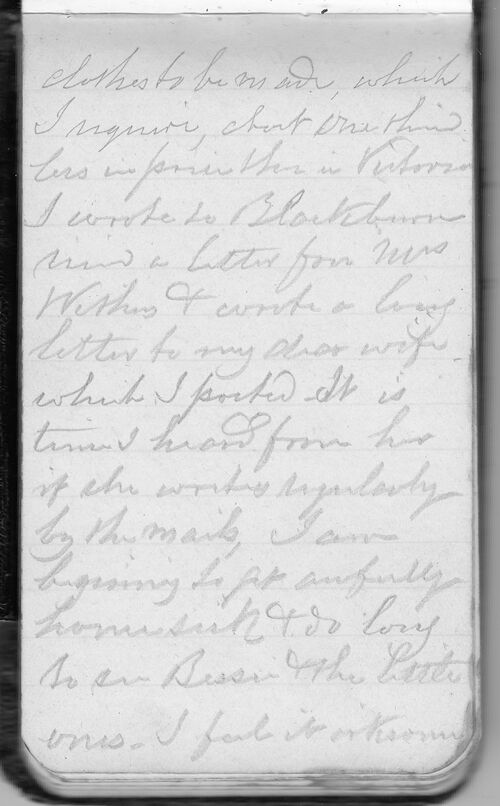 clothes to be made, which
I require, about one third
less in price than in Victoria
I wrote to Blackburn
a letter from Mrs
& wrote a long
letter to my dear wife
which I posted It is
time I heard from her
if she writes regularly
by the mails, I am
begining to get awfully
homesick & do long
to see Bessie & the little
ones. I feel it irksome